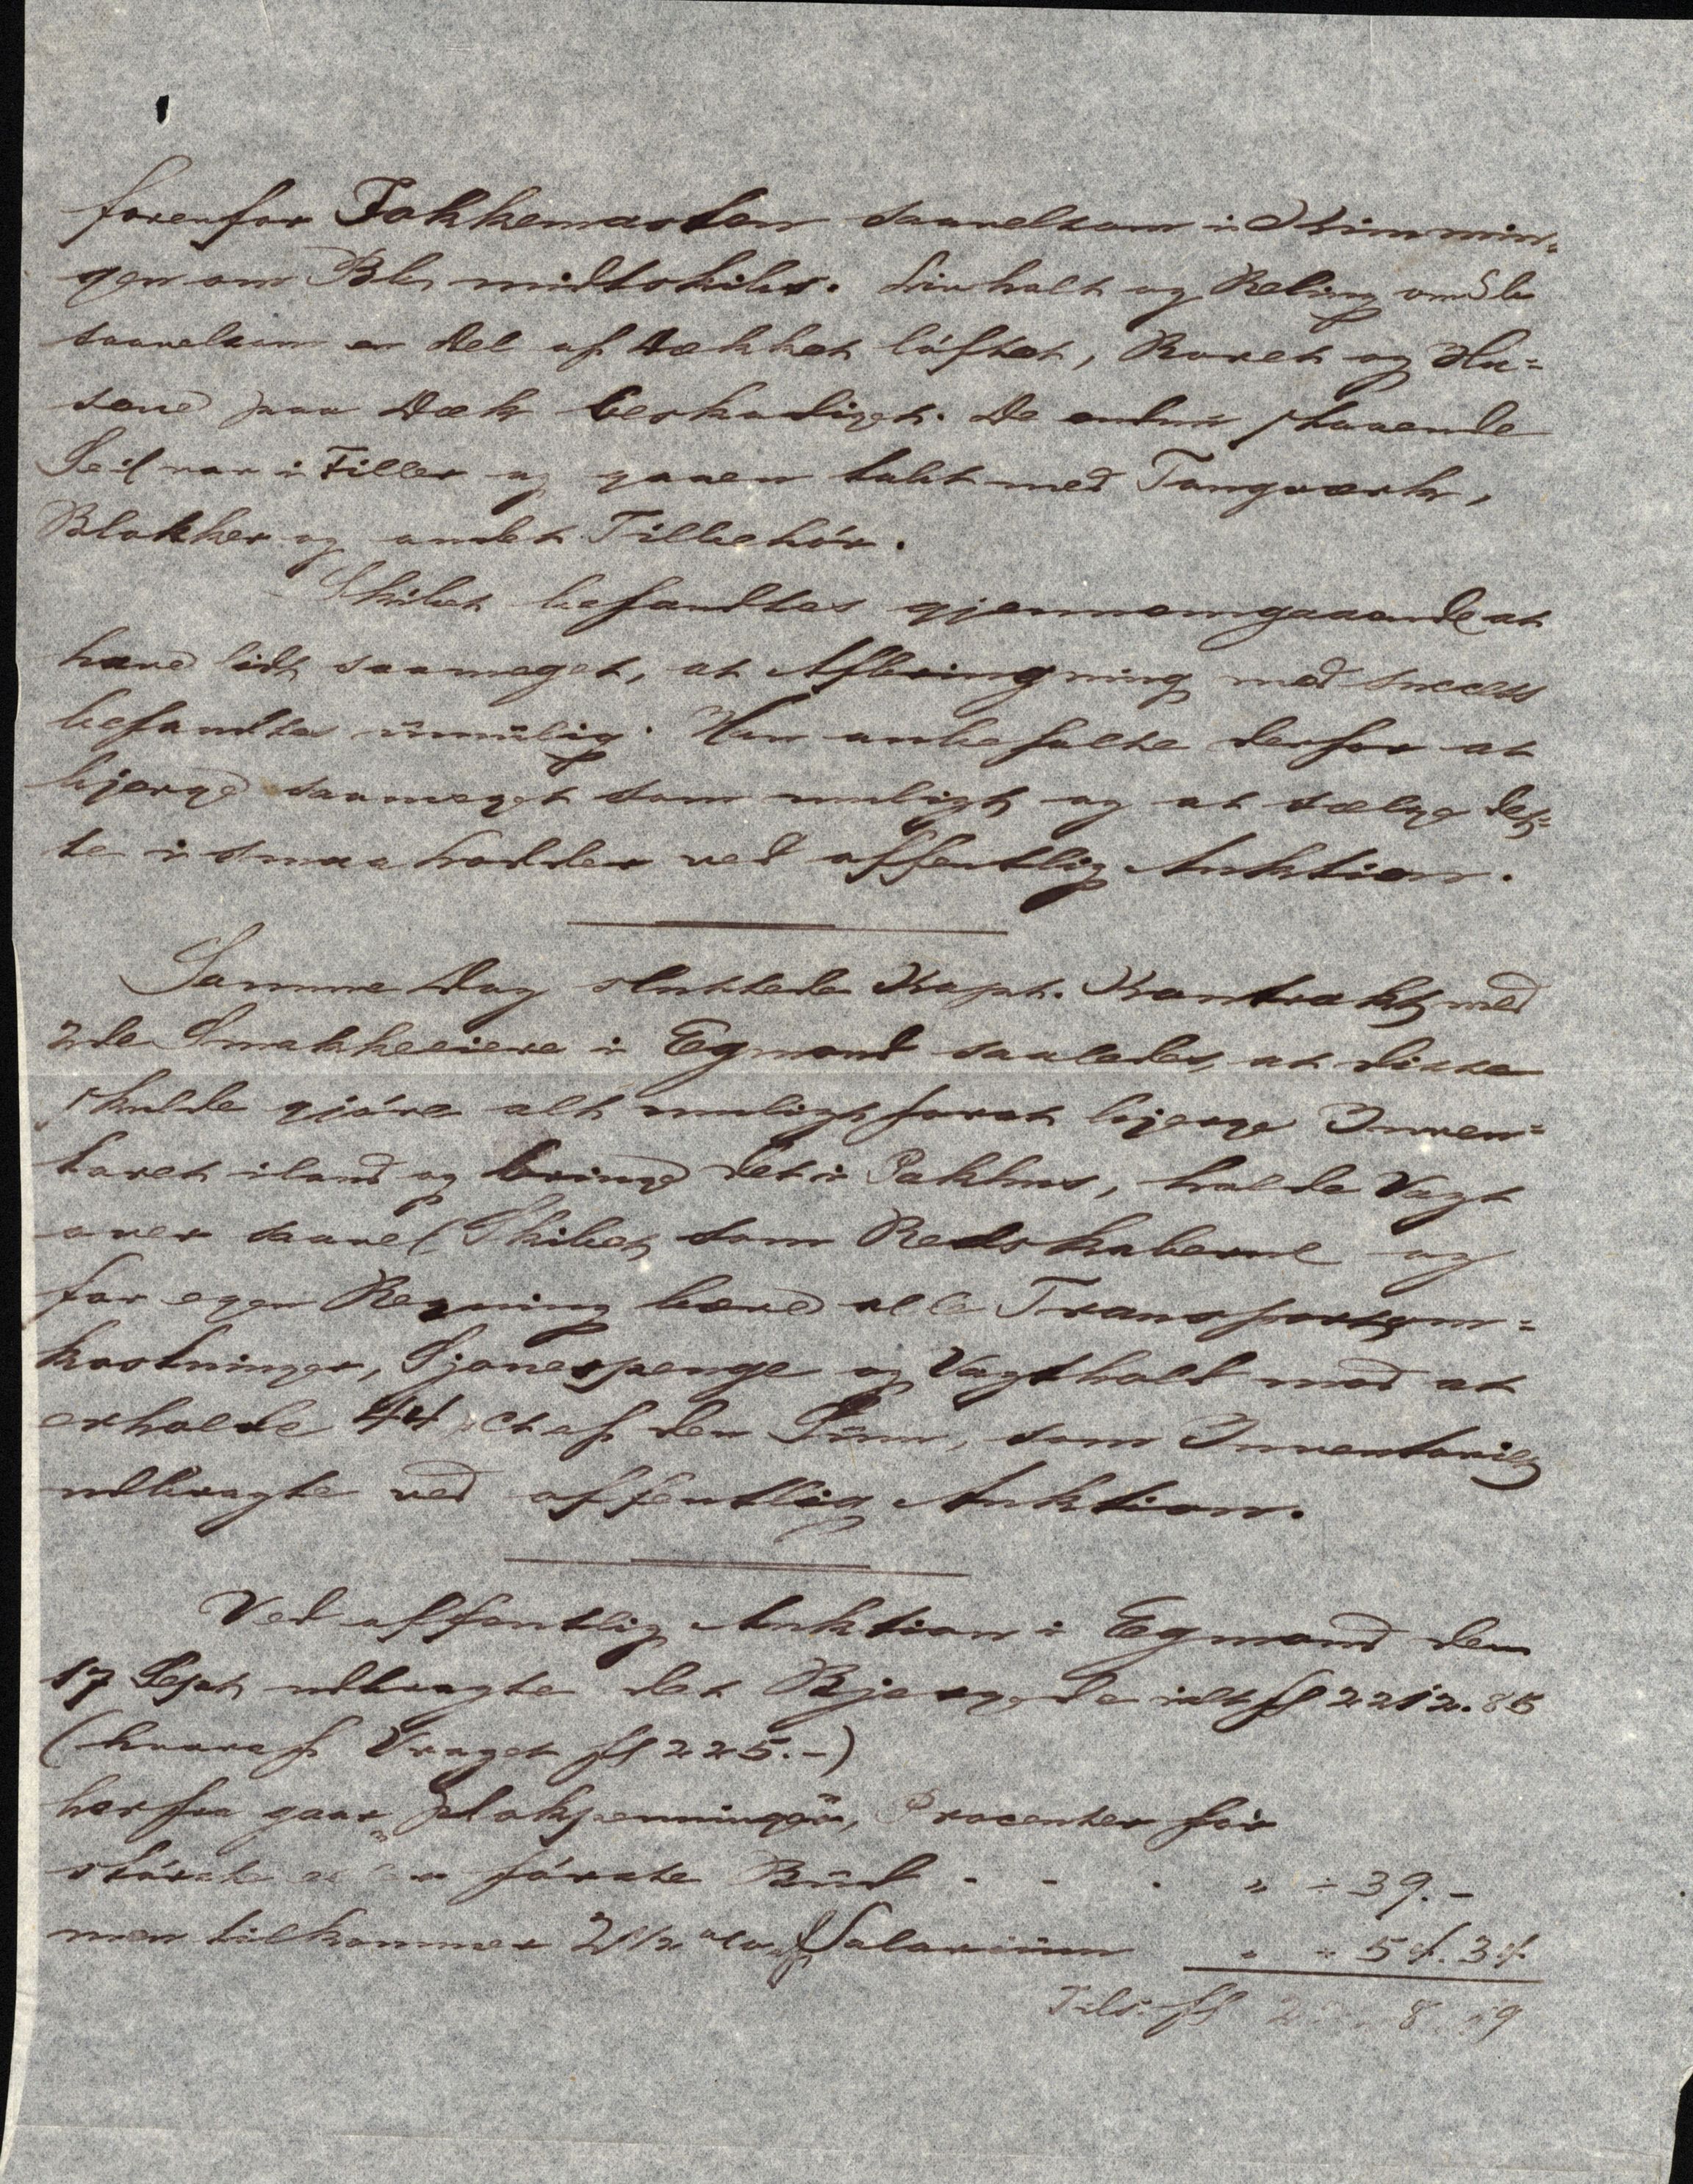 forenfor Fokkemasten saavelsom i Kimmin-
gen om Bb. midtskibs. Finholt og Reling omb
saavelsom en del af Dækket löftet, Roret og Hu=
sene paa Dæk beskadiget. De endnu staaende
Seil var i Filler og gaaen tabt med Tangværk,
Blokker og andet Tilbehör.
Skibet befandtes gjennemgaaende at
have lidt saameget, at Afbringning med success
befandtes umulig. Han anbefalte derfor at
bjerge saameget som muligt og at sælge det=
te i smaa lodder ved offentlig Auktion.
Samme Dag sluttede Kapt. Kontrakt med
2de Smakkeeiere i Egmond saaledes, at disse
skulde gjöre alt muligt forat bjerge Inven=
taret iland og bringe det i Pakhus, holde Vagt
over saavel Skibet som Redskaberne og
for egen Regning bære alle Transportom=
kostninger, Sjouerpenge og Vagthold mod at
erholde 44 pct af den Sum, som Inventariet
udbragte ved offentlig Auktion.
Ved offentlig Auktion i Egmond den
17 Sept udbragte det Bjergede ialt fl 2212.85
(hvoraf Vraget fl 225.-)
herfra gaar "plokpenningen", Procenter for
störste eller förste Bud - - - " ÷ 39.-
men tilkommer 2 1/2 % Salarium " " 54.34
Tils. fl